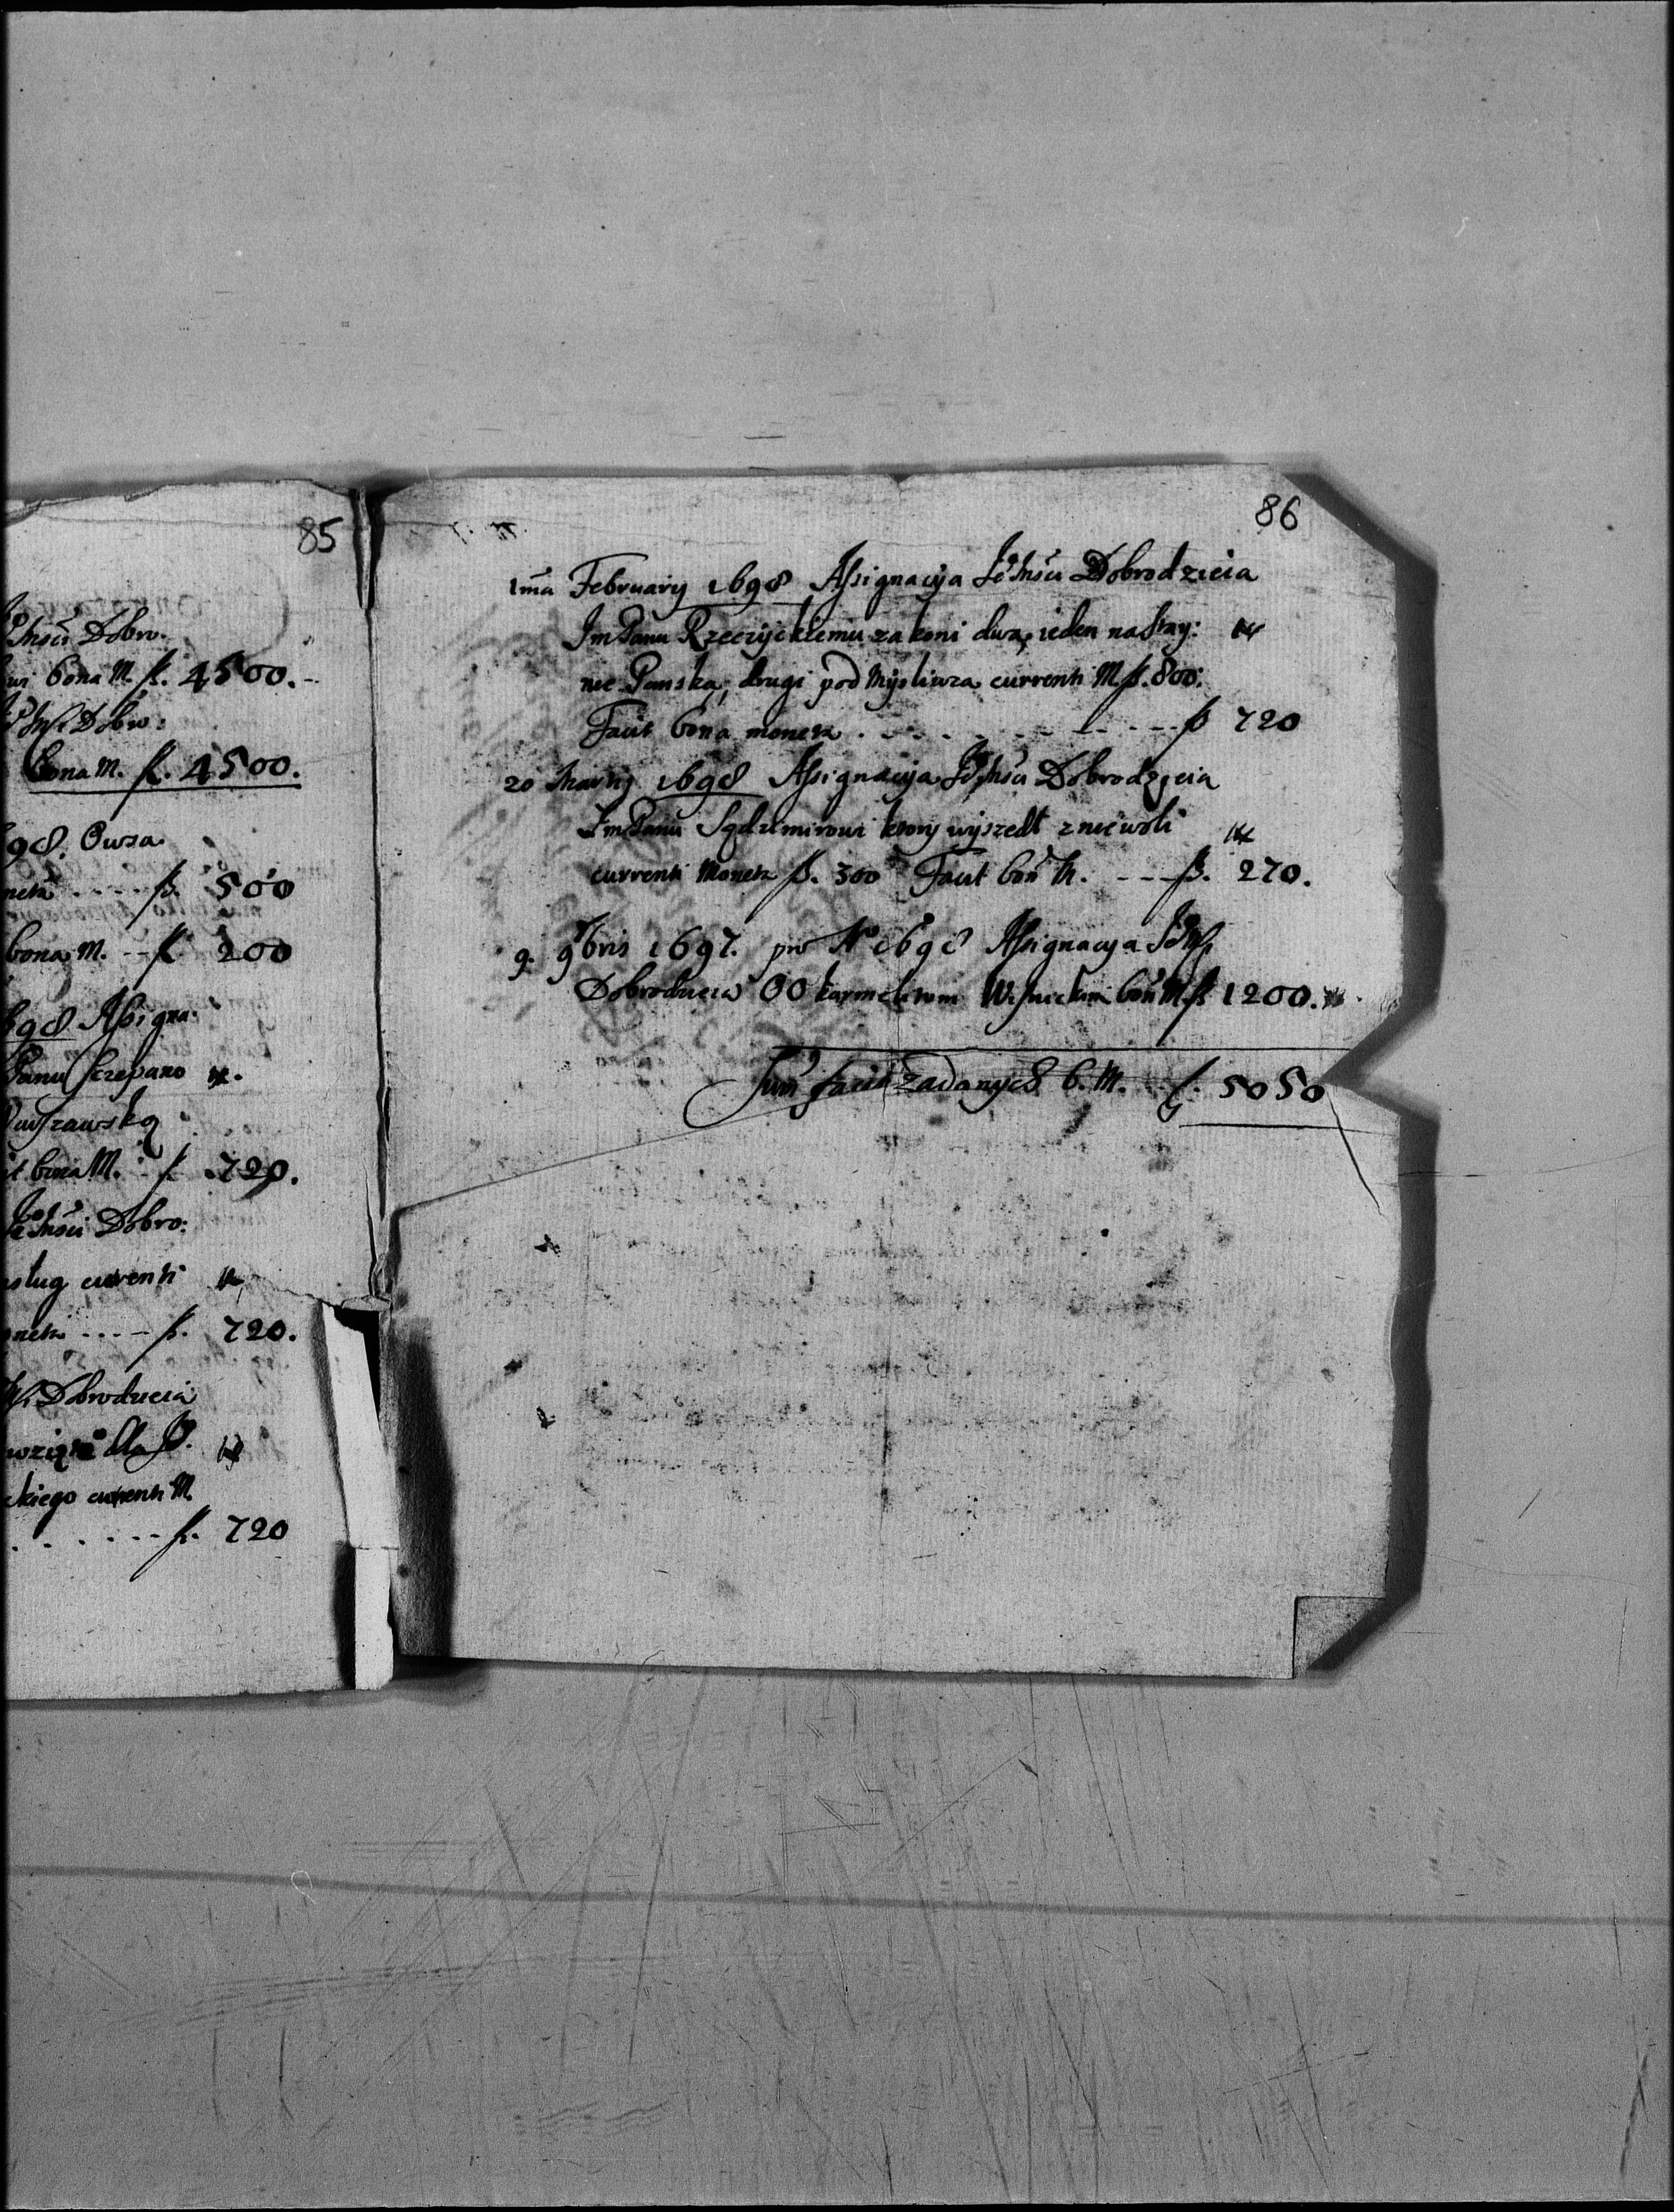 85
Dobro.
bona M. fl. 4500.
Dobro:
bona M. fl. 4500.
98. Owsa.
neta fl. 500
bona M. -- fl. 200
698 Assigna.
Panu Szczepano
bona M. fl. 720.
Jeo Msci Dobro:
sług currenti
fl. 720.
Dobrodzieia
wzięte dla
ckiego currenti M.
fl. 720
86
1ma February 1698 Assignacyja Jeo Msci Dobrodzieia
Jm Panu Rzeczyckiemu za koni dwa, ieden na stay:
nie Panska, drugi pod Mysliwca currenti M. fl. 800.
Facit bona moneta fl. 720
20 Martij 1698 Assignacyja Jeo Msci Dobrodzieia
Jm Panu Sędzimirowi ktory wyszedł z niewoli
currenti Moneta fl. 300 Facit bon M. --- fl. 270.
9. 9bris 1697. pro Ao 1698 Assignacyja
Dobrodzieia OO Karmelitom Wisnickim bon M. fl. 1200.
Sum facit zadanych b. M. fl. 5050